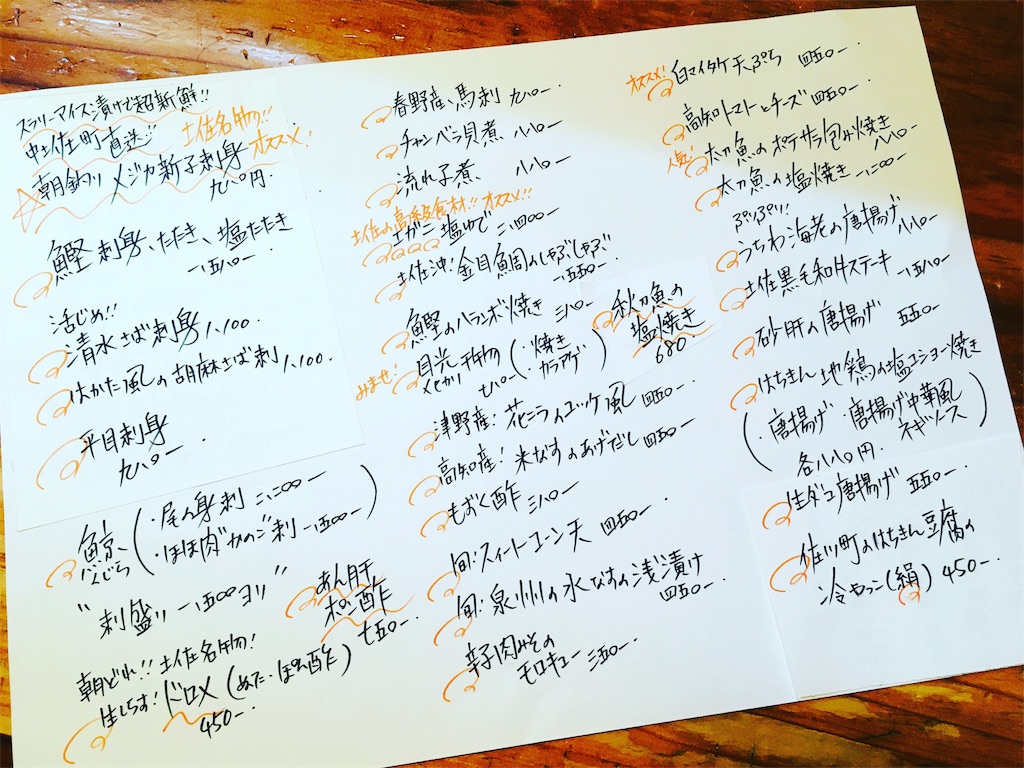 スラリーアイス漬けで超新鮮!!
中土佐町直送!! 土佐名物!!
朝釣り メジカ新子刺身 オススメ!
九八〇円.
鰹 刺身、たたき、塩たたき
一、五八〇ー
活じめ!!
清水さば刺身 1,100.
はかた風の胡麻さば刺 1,100.
平目刺身
九八〇ー
鯨 くじら
(・尾の身刺 二、二〇〇ー
・ほほ肉かのこ刺 一、五〇〇ー)
"刺盛り 一、五〇〇ヨリ"
あん肝
ポン酢
七五〇ー
朝どれ!! 土佐名物!
生しらす! ドロメ (ぬた・ぽん酢)
450ー.
春野産、馬刺 九八〇ー
チャンバラ貝煮 八八〇ー
流れ子煮、八八〇ー
土佐の高級食材!! オススメ!!
土ガニ塩ゆで 二、四〇〇ー
土佐沖! 金目鯛のしゃぶしゃぶ
一、五五〇ー
鰹のハランボ焼き 三八〇ー
みませ! 目光干物 (・焼き
・カラアゲ)
メヒカリ 七八〇ー
秋刀魚の
塩焼き
680.
津野産! 花ニラのユッケ風 四五〇ー
高知産! 米なすのあげだし 四五〇ー
もずく酢 三八〇ー
旬:スイートコーン天 四五〇ー
旬:泉州の水なすの浅漬け
四五〇ー
辛子肉みその
モロキュー 三五〇ー
オススメ! 白マイタケ天ぷら 四五〇ー
高知トマトとチーズ 四五〇ー
人気! 太刀魚のポテサラ包み焼き
八八〇ー
太刀魚の塩焼き 一、二〇〇ー
ぷりぷり!
うちわ海老の唐揚げ
八八〇ー
土佐黒毛和牛ステーキ 一、五八〇ー
砂肝の唐揚げ 五五〇ー
はちきん地鶏の塩コショー焼き
(・唐揚げ・唐揚げ中華風
ネギソース)
各八八〇円.
生ダコ唐揚げ 五五〇ー.
佐川町のはちきん豆腐の
冷やっこ(絹) 450ー.